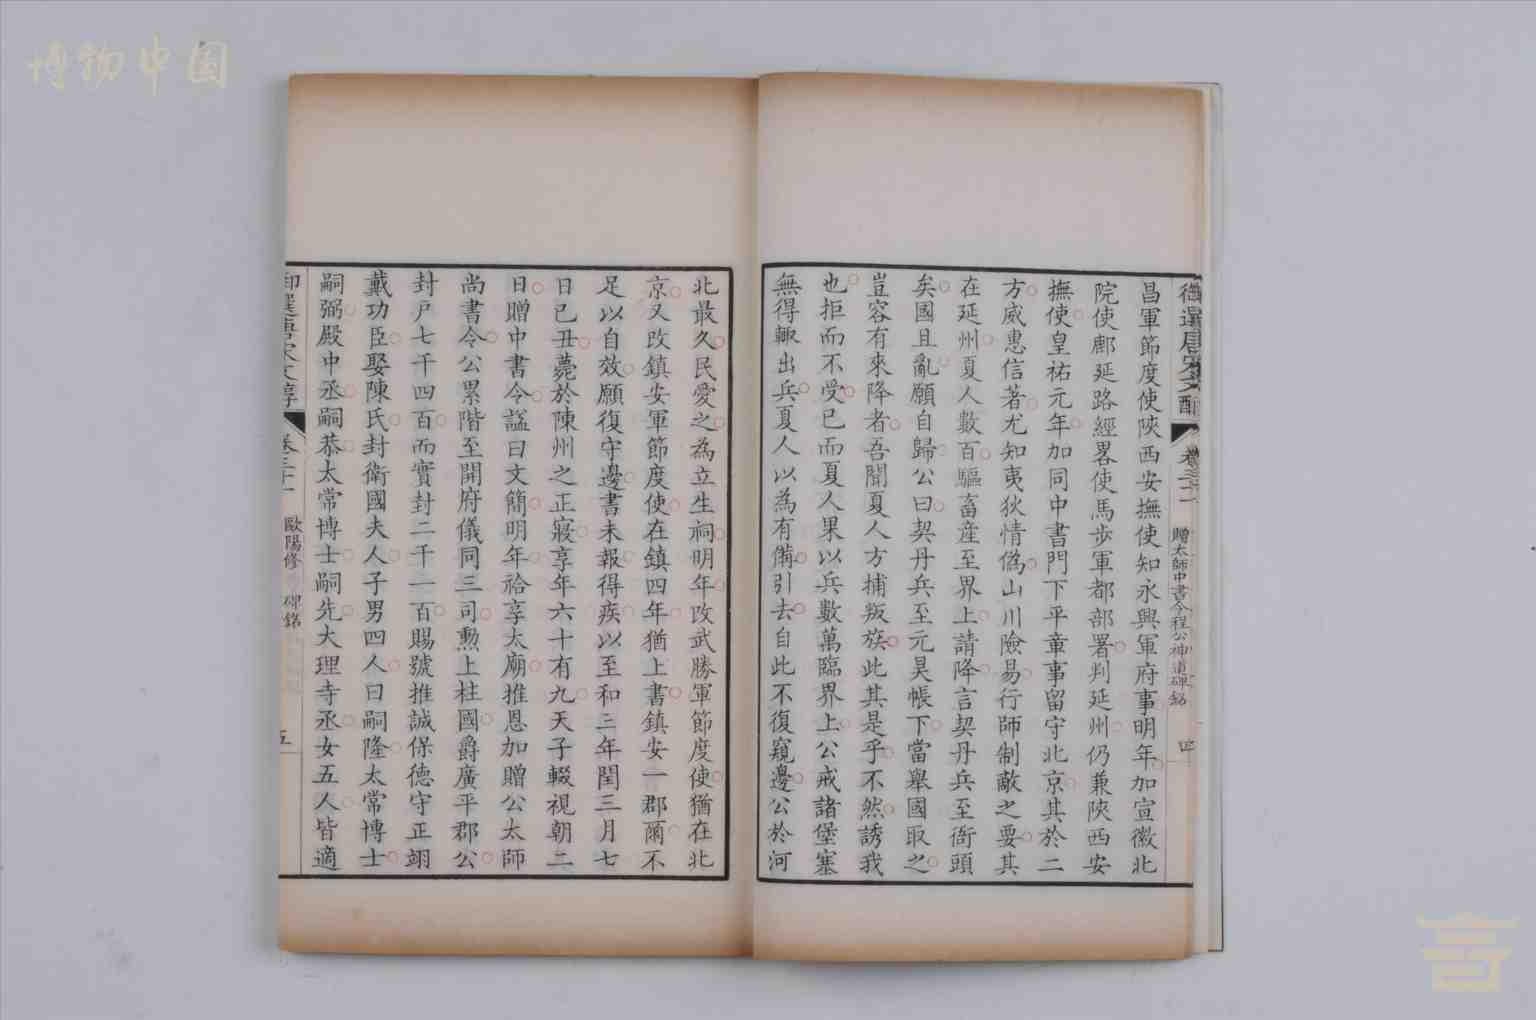 博物中国
御選唐宋文醇
卷三十一
贈太師中書令程公神道碑銘
四
昌軍節度使陝西安撫使知永興軍府事明年加宣徽北
院使鄜延路經畧使馬步軍都部署判延州仍兼陝西安
撫使皇祐元年加同中書門下平章事留守北京其於二
方威惠信著尤知夷狄情僞山川險易行師制敵之要其
在延州夏人數百驅畜產至界上請降言契丹兵至衙頭
矣國且亂願自歸公曰契丹兵至元昊帳下當舉國取之
豈容有來降者吾聞夏人方捕叛族此其是乎不然誘我
也拒而不受已而夏人果以兵數萬臨界上公戒諸堡塞
無得輙出兵夏人以為有備引去自此不復窺邊公於河
北最久民愛之為立生祠明年改武勝軍節度使猶在北
京又改鎮安軍節度使在鎮四年猶上書鎮安一郡爾不
足以自效願復守邊書未報得疾以至和三年閏三月七
日已丑薨於陳州之正寢享年六十有九天子輟視朝二
日贈中書令諡曰文簡明年祫享太廟推恩加贈公太師
尚書令公累階至開府儀同三司勲上柱國爵廣平郡公
封戶七千四百而實封二千一百賜號推誠保德守正翊
戴功臣娶陳氏封衛國夫人子男四人曰嗣隆太常博士
嗣弼殿中丞嗣恭太常博士嗣先大理寺丞女五人皆適
御選唐宋文醇
卷三十一
歐陽修
碑銘
五